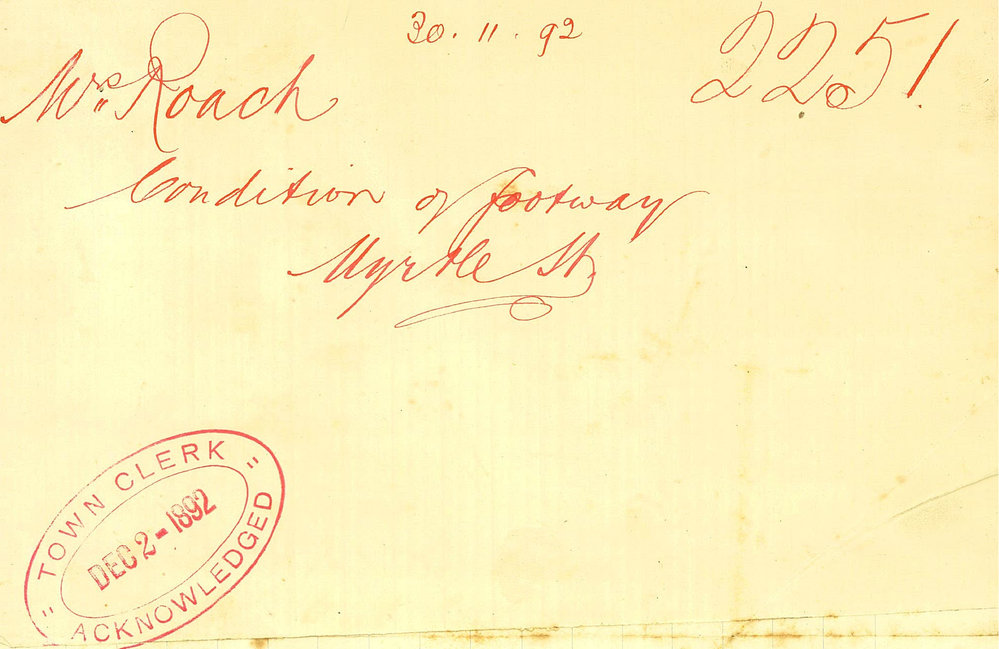 30.11.92
2251
Mrs Roach
Condition of footway
Myrtle St.
TOWN CLERK
DEC 2-1892
ACKNOWLEDGED